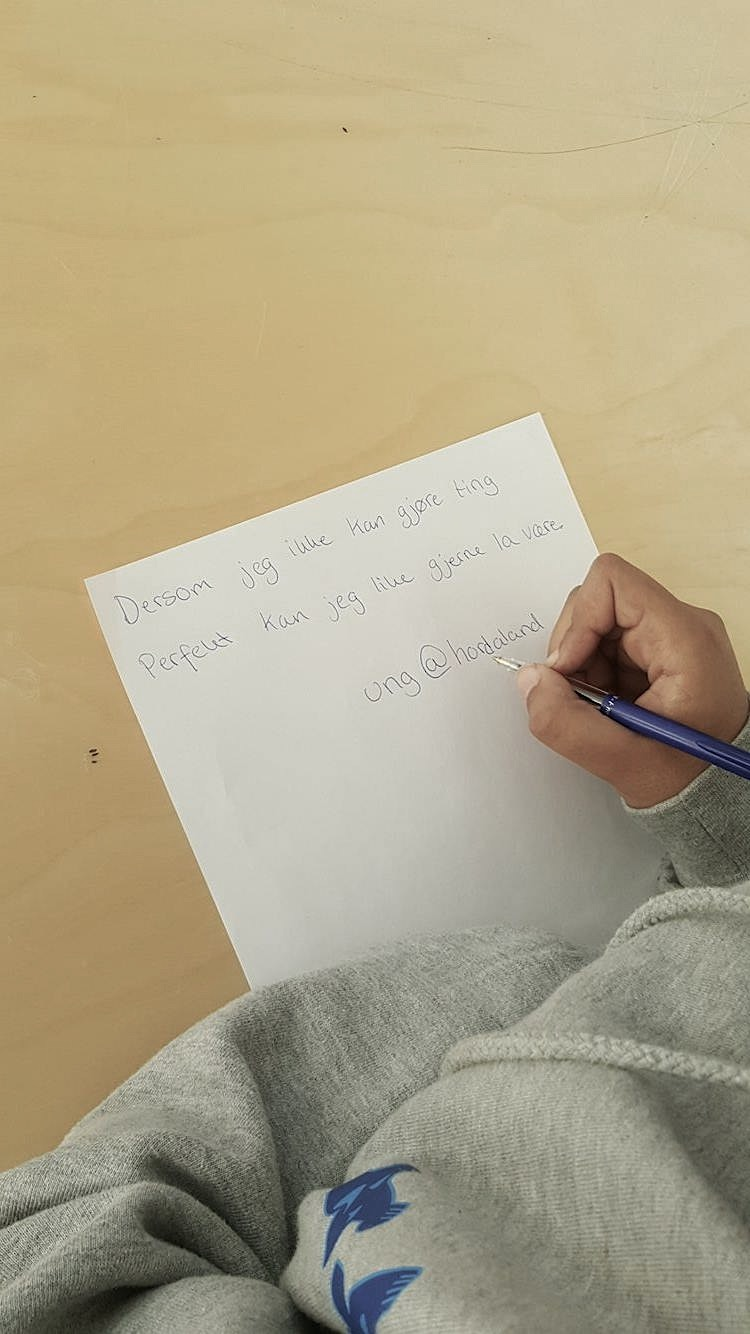 Dersom jeg ikke kan gjøre ting
Perfekt kan jeg like gjerne la være.
ung@hordaland